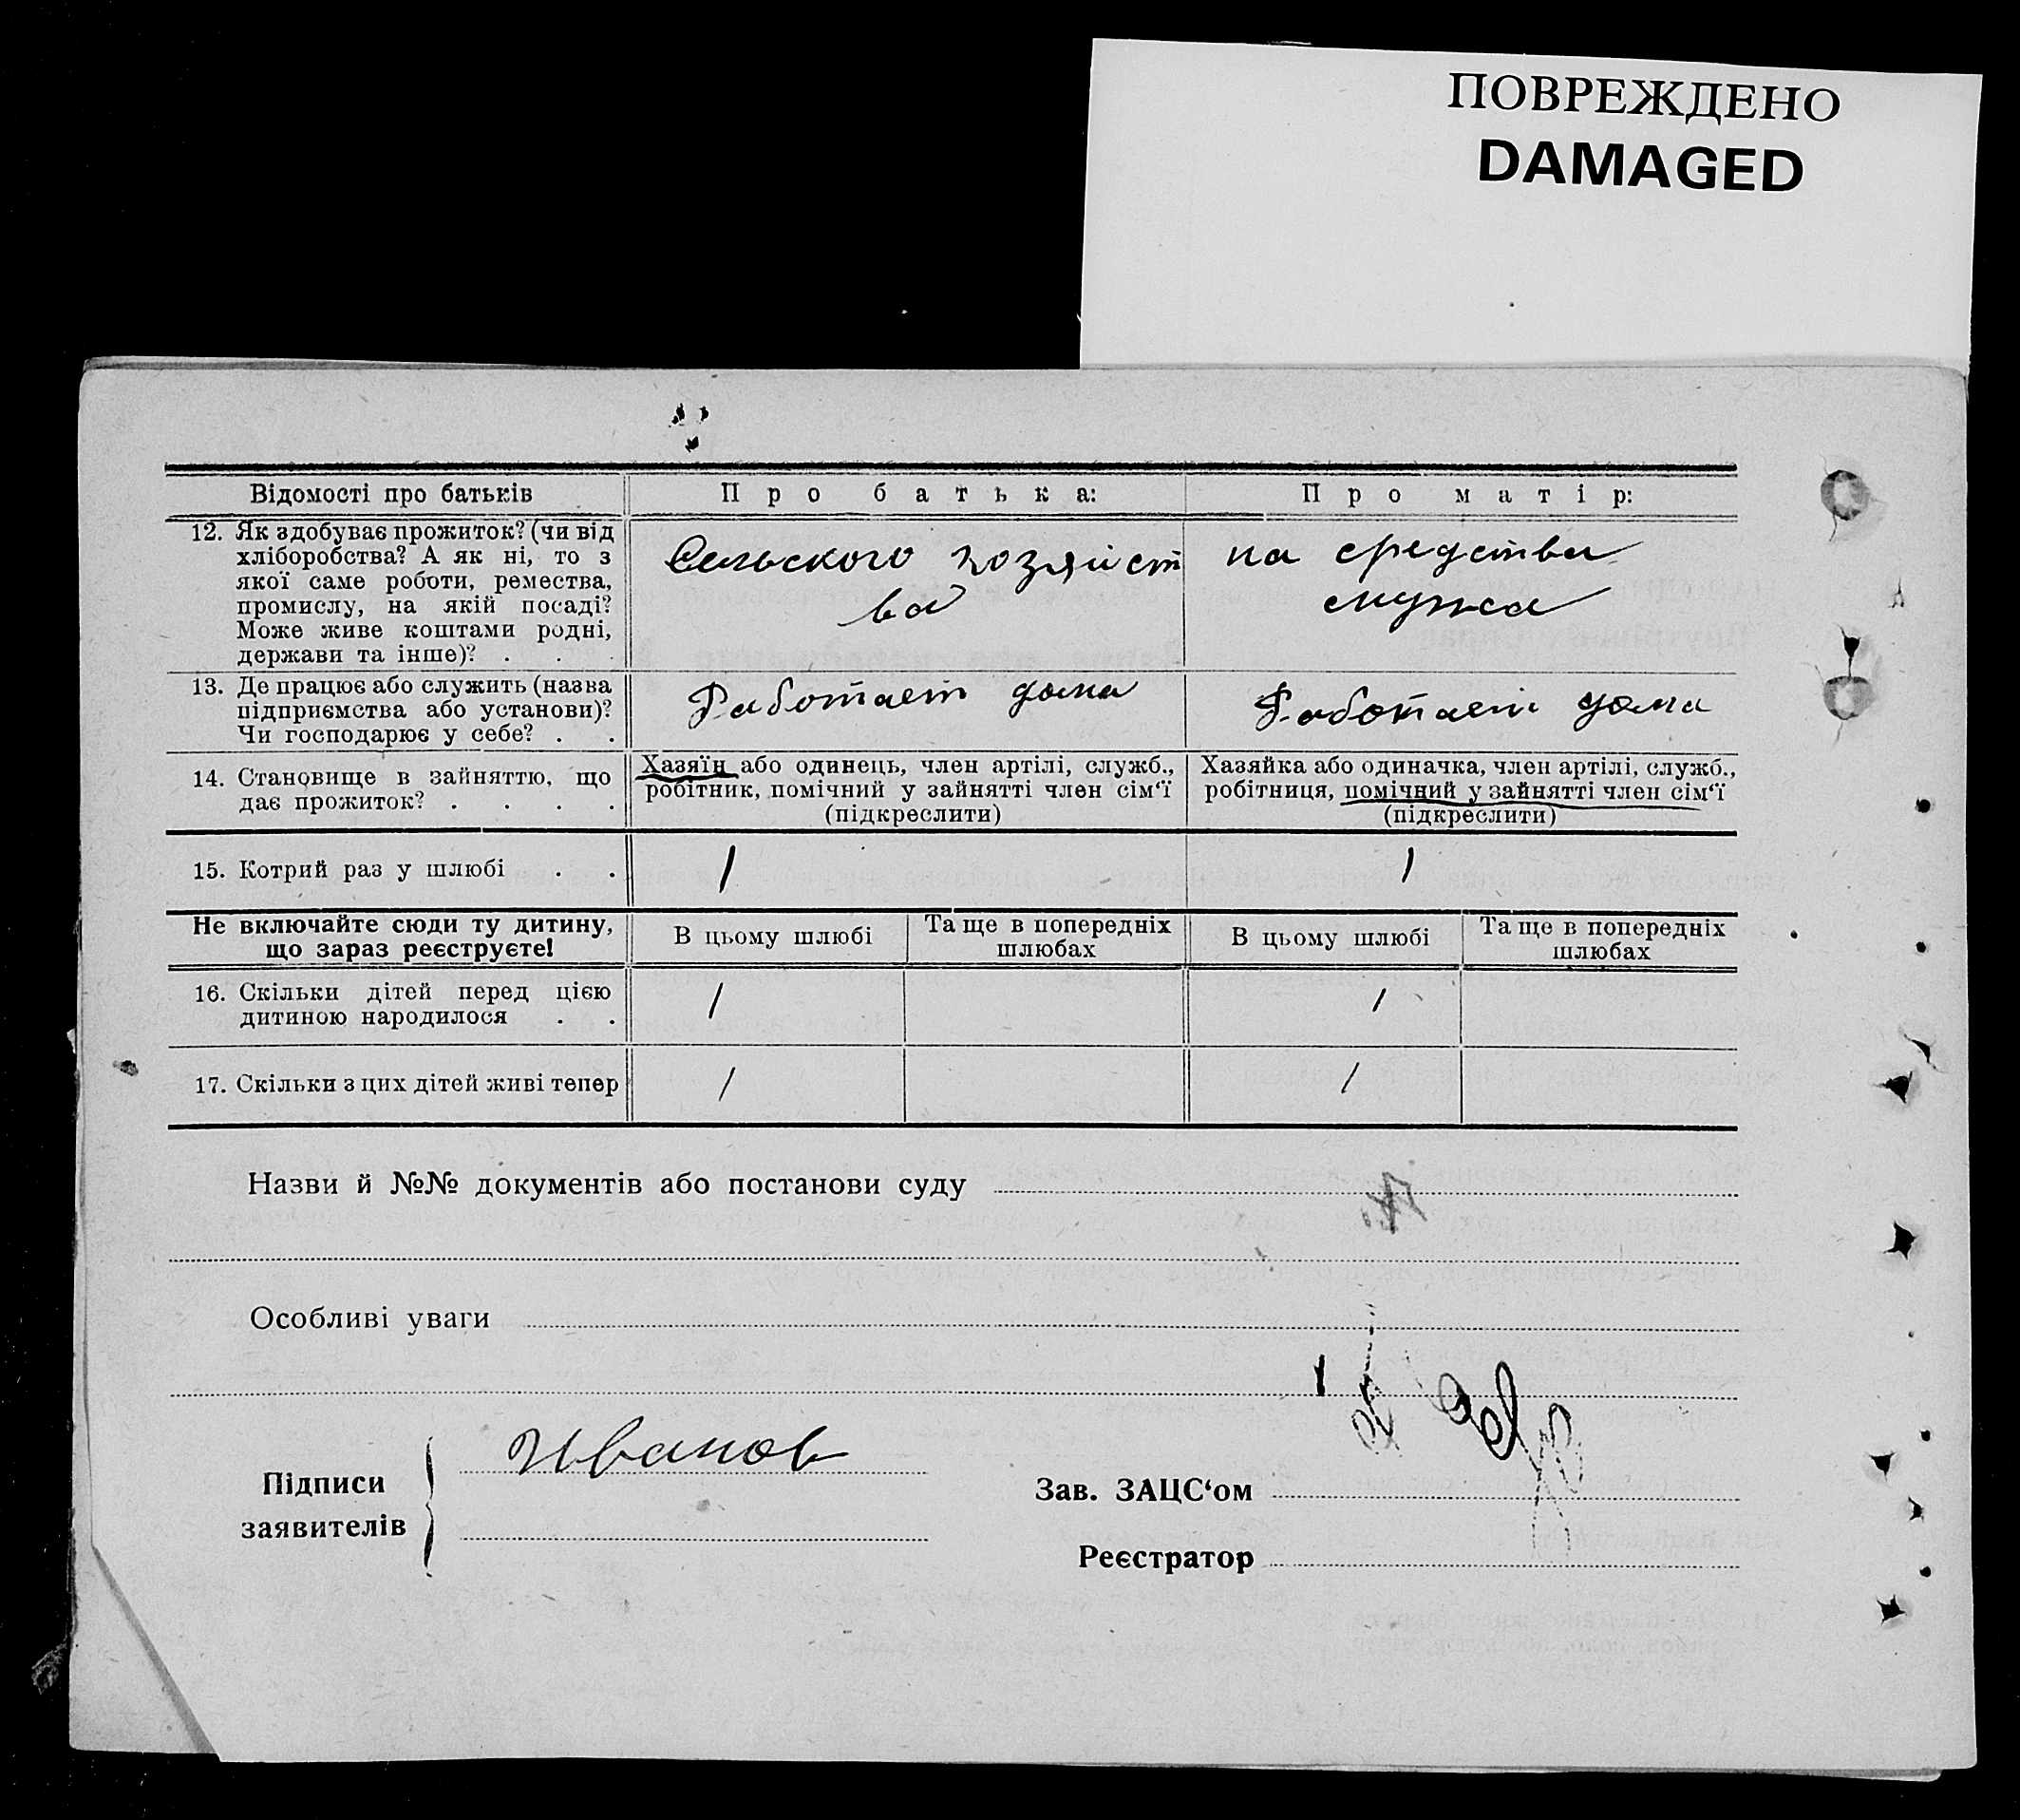 ПОВРЕЖДЕНО
DAMAGED
Відомості про батьків
Про батька:
Про матір:
12. Як здобуває прожиток? (чи від
хліборобства? А як ні, то з
якої саме роботи, ремества,
промислу, на якій посаді?
Може живе коштами родні,
держави та інше)? . . .
Сельского хозяйст
ва
на средства
мужа
13. Де працює або служить (назва
підприємства або установи)?
Чи господарює у себе? . .
Работает дома
Работает дома
14. Становище в зайняттю, що
дає прожиток? . . . .
Хазяїн або одинець, член артілі, служб.,
робітник, помічний у зайнятті член сім‘ї
(підкреслити)
Хазяйка або одиначка, член артілі, служб.,
робітниця, помічний у зайнятті член сім‘ї
(підкреслити)
15. Котрий раз у шлюбі . .
1
1
Не включайте сюди ту дитину,
що зараз реєструєте!
В цьому шлюбі
Та ще в попередніх
шлюбах
В цьому шлюбі
Та ще в попередніх
шлюбах
16. Скільки дітей перед цією
дитиною народилося . .
1
1
17. Скільки з цих дітей живі тепер
1
1
Назви й №№ документів або постанови суду
Особливі уваги
Підписи
заявителів
Иванов
Зав. ЗАЦС‘ом
Реєстратор